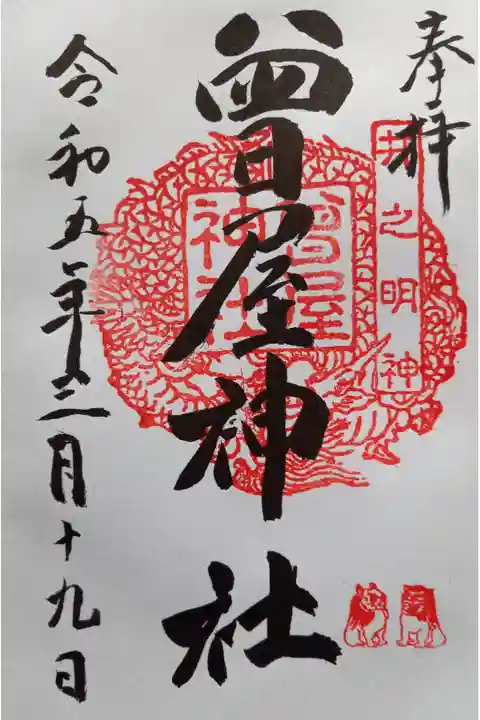 奉拝
井之明神
曽屋神社
曽屋神社
令和五年三月十九日